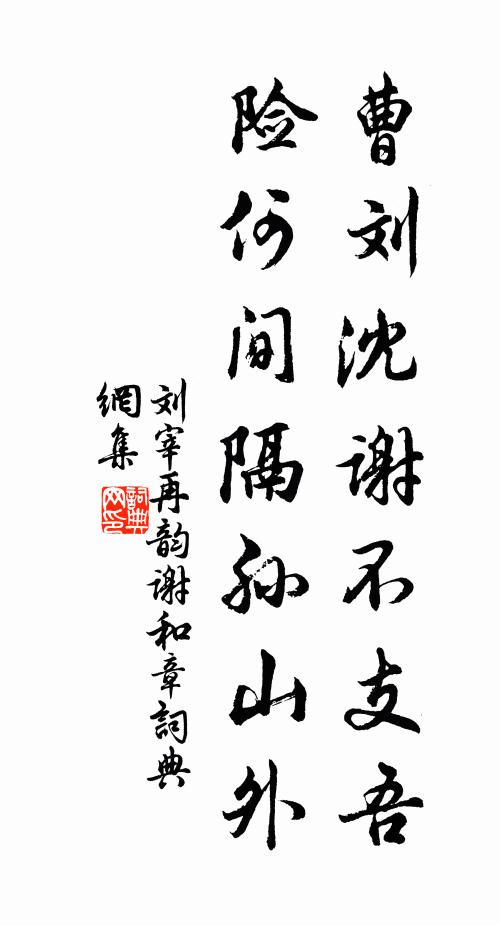 曹刘沈谢不支吾
险何间隔孙山外
刘宰再韵谢和章詞典
網集
詞典
网印